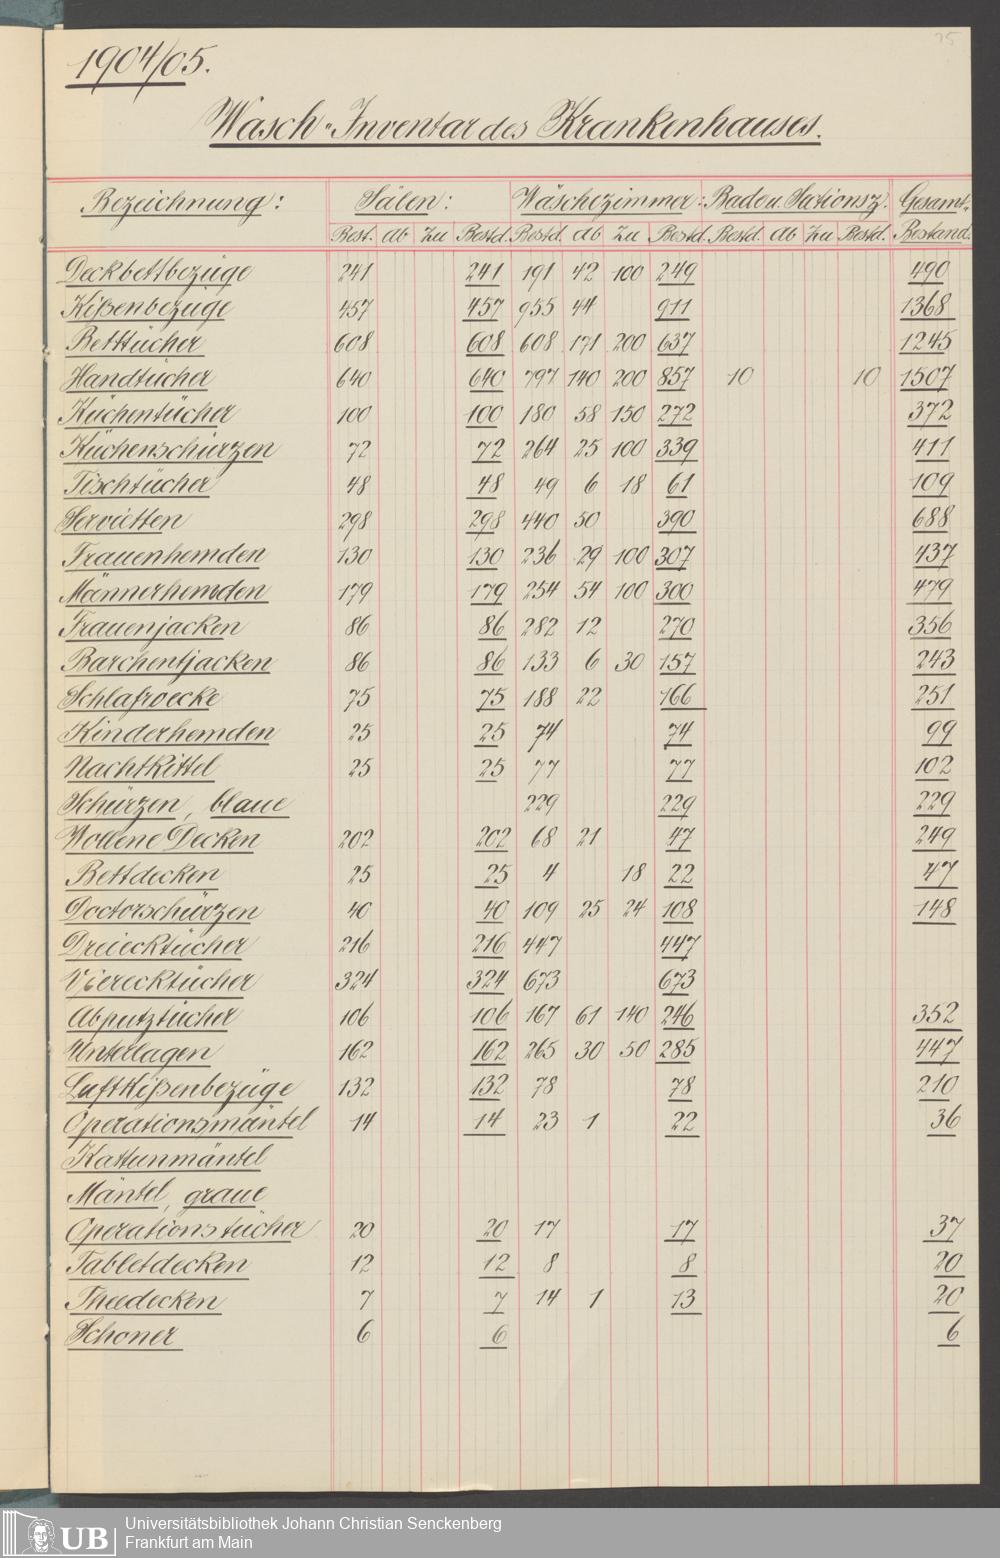 35
1904/05.
Wasch-Inventar des Krankenhauses.
Bezeichnung: Sälen: Wäschezimmer: Bad u. Sectionsz. Gesamt-
Best. Ab Zu Bestd. Bestd. Ab Zu Bestd. Bestd. Ab Zu Bestd. Bestand.
Deckbettbezüge 241 241 191 42 100 249 490
Kißenbezüge 457 457 955 44 911 1368
Betttücher 608 608 608 171 200 637 1245
Handtücher 640 640 797 140 200 857 10 10 1507
Küchentücher 100 100 180 58 150 272 372
Küchenschürzen 72 72 264 25 100 339 411
Tischtücher 48 48 49 6 18 61 109
Servietten 298 298 440 50 390 688
Frauenhemden 130 130 236 29 100 307 437
Männerhemden 179 179 254 54 100 300 479
Frauenjacken 86 86 282 12 270 356
Barchentjacken 86 86 133 6 30 157 243
Schlafroecke 75 75 188 22 166 251
Kinderhemden 25 25 74 74 99
Nachtkittel 25 25 77 77 102
Schürzen, blaue 229 229 229
Wollene Decken 202 202 68 21 47 249
Bettdecken 25 25 4 18 22 47
Doctorschürzen 40 40 109 25 24 108 148
Dreiecktücher 216 216 447 447
Vierecktücher 324 324 673 673
Abputztücher 106 106 167 61 140 246 352
Unterlagen 162 162 265 30 50 285 447
Luftkißenbezüge 132 132 78 78 210
Operationsmäntel 14 14 23 1 22 36
Kattunmäntel
Mäntel, graue
Operationstücher 20 20 17 17 37
Tabletdecken 12 12 8 8 20
Theedecken 7 7 14 1 13 20
Schoner 6 6 6
UB Universitätsbibliothek Johann Christian Senckenberg
Frankfurt am Main